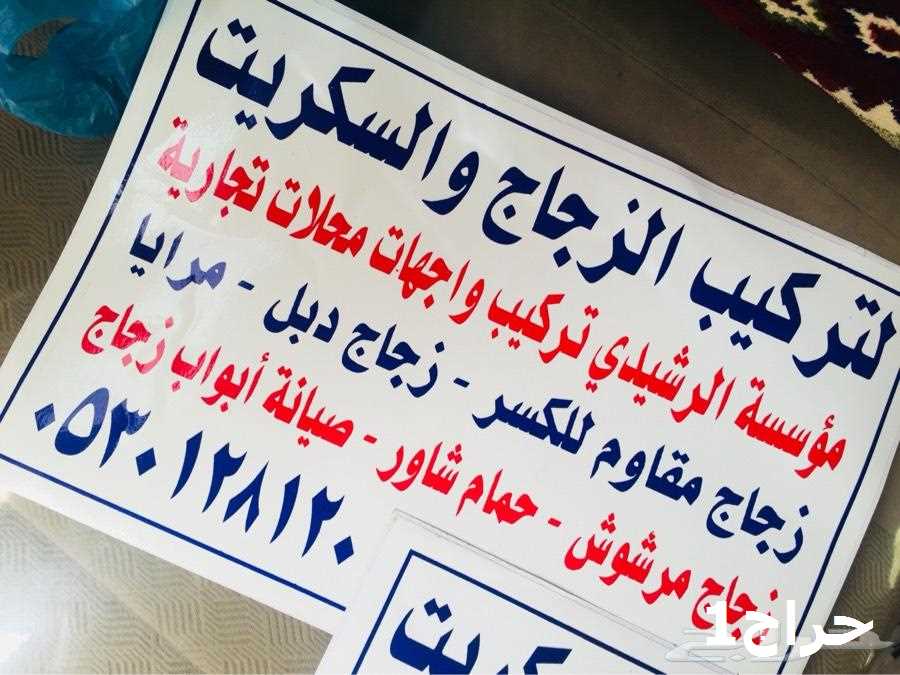 لتركيب الزجاج والسكريت
مؤسسة الرشيدي تركيب واجهات محلات تجارية
زجاج مقاوم للكسر - زجاج دبل - مرايا
زجاج مرشوش - حمام شاور - صيانة أبواب زجاج
٠٥٣٠١٢٨١٢٠
كريت
حراج1